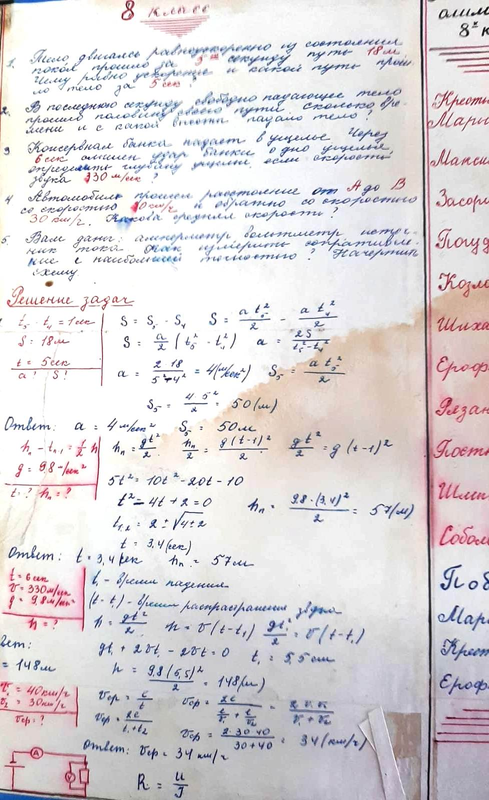 8 класс
1. Тело двигаясь равноускоренно из состояния
покоя прошло за 5ую секунду путь 18м
Чему равно ускорение и какой путь прош
ло тело за 5сек?
2. В последнюю секунду свободно падающее тело
прошло половину своего пути. Сколько вре-
мени и с какой высоты падало тело?
3 Консервная банка падает в ущелье. Через
6 сек слышен удар банки о дно ущелья.
определить глубину ущелья если скорость
звука 330 м/сек?
4 Автомобиль прошел расстояние от А до В
со скоростью 40км/г и обратно со скоростью
30 км/г. Какова средняя скорость?
5. Вам даны: амперметр вольтметр источ-
ник тока. Как измерить сопротивле-
ние с наибольшей точностью? Начертить
схему
Решение задач
t5 - t4 = 1сек
S = 18м
t = 5сек
a? S?
S = S5 - S4 S = at5²/2 - at4²/2
S = a/2 (t5² - t4²) a = 2S/(t5² - t4²)
a = 2·18/(5² - 4²) = 4(м/сек²) S5 = at5²/2
S5 = 4·5²/2 = 50(м)
Ответ: a = 4м/сек² S5 = 50м
hn - tn-1 = 1/2 h
g = 9,8м/сек²
t? hn = ?
hn = gt²/2 hn/2 = g(t-1)²/2 gt²/2 = g(t-1)²
5t² = 10t² - 20t - 10
t² - 4t + 2 = 0 hn = 9,8·(3,4)²/2 = 57(м)
t1,2 = 2 ± √4±2
t = 3,4(сек)
Ответ: t = 3,4сек hn = 57м
t = 6сек
V = 330м/сек
g = 9,8м/сек²
h = ?
t1 - время падения
(t - t1) - время распространения звука
h = gt1²/2 h = V(t - t1) gt1²/2 = V(t - t1)
gt1 + 2Vt1 - 2Vt = 0 t1 = 5,5сек
h = 9,8(5,5)²/2 = 148(м)
= 148м
V1 = 40км/г
V2 = 30км/г
Vср = ?
Vср = S/t Vср = 2S/(S/V1 + S/V2) = 2V1V2/(V1 + V2)
Vср = 2S/(t1 + t2) Vср = 2·30·40/(30 + 40) = 34(км/г)
Ответ: Vср = 34 км/г
A
R = U/J
олим
8х к
Крестья
Мари
Макси
Засор
Козло
Шиха
Ероф
Рязан
Постн
Шлип
Собол
Поб
Мари
Крест
Ероф